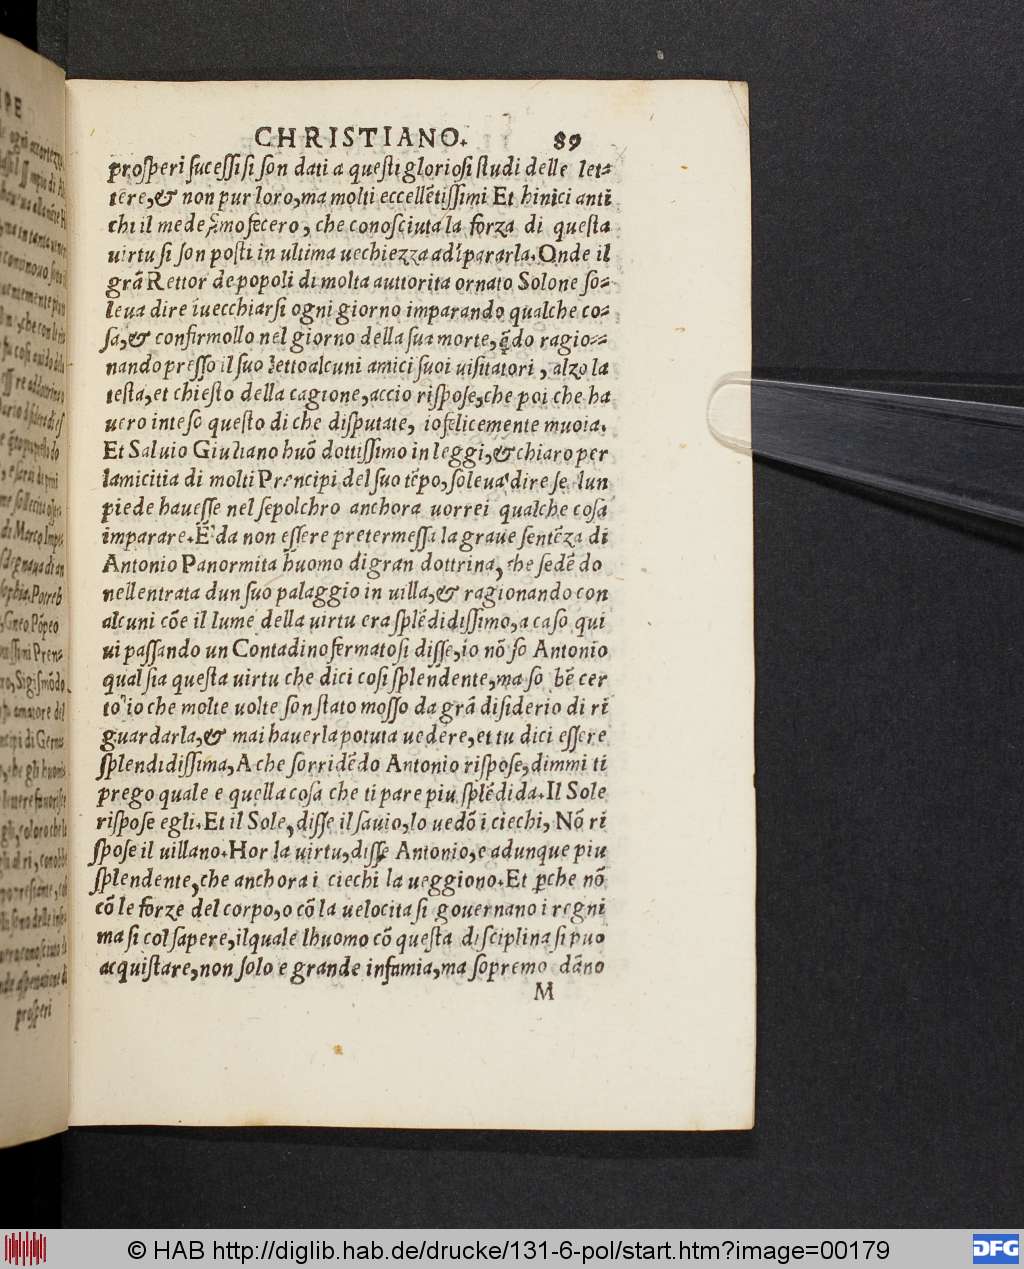 CHRISTIANO. 89
prosperi sucessi si son dati a questi gloriosi studi delle let-
tere, & non pur loro, ma molti eccellẽtissimi Et hinici anti
chi il mede fecero, che conosciuta la forza di questa
uirtu si son posti in ultima uechiezza ad ĩpararla. Onde il
grã Rettor de popoli di molta auttorita ornato Solone so-
leua dire ĩuecchiarsi ogni giorno imparando qualche co-
sa, & confirmollo nel giorno della sua morte, q̃do ragio-
nando presso il suo letto alcuni amici suoi uisitatori, alzo la
testa, et chiesto della cagione, accio rispose, che poi che ha
uero inteso questo di che disputate, io felicemente muoia.
Et Saluio Giuliano huõ dottissimo in leggi, & chiaro per
lamicitia di molti Prencipi del suo tẽpo, soleua dire se lun
piede hauesse nel sepolchro anchora uorrei qualche cosa
imparare. E da non essere pretermessa la graue sentẽza di
Antonio Panormita huomo di gran dottrina, che sedẽ do
nell entrata dun suo palaggio in uilla, & ragionando con
alcuni cõe il lume della uirtu era splẽdidissimo, a caso qui
ui passando un Contadino fermatosi disse, io nõ so Antonio
qual sia questa uirtu che dici cosi splendente, ma so bẽ cer
to io che molte uolte son stato mosso da grã disiderio di ri
guardarla, & mai hauerla potuta uedere, et tu dici essere
splendidissima, A che sorridẽdo Antonio rispose, dimmi ti
prego quale e quella cosa che ti pare piu splẽdida. Il Sole
rispose egli. Et il Sole, disse il sauio, lo uedõ i ciechi, Nõ ri
spose il uillano. Hor la uirtu, disse Antonio, e adunque piu
splendente, che anchora i ciechi la ueggiono. Et ꝑche nõ
cõ le forze del corpo, o cõ la uelocita si gouernano i regni
ma si col sapere, ilquale lhuomo cõ questa disciplina si puo
acquistare, non solo e grande infamia, ma sopremo dãno
M
prosperi
© HAB http://diglib.hab.de/drucke/131-6-pol/start.htm?image=00179
DFG